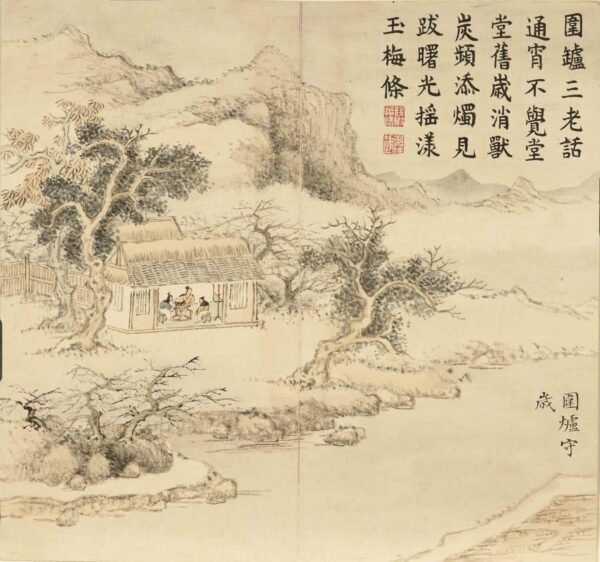 圍鑪三老話
通宵不覺堂
堂舊歲消獸
炭頻添燭見
跋曙光搖漾
玉梅條
圍爐守
歲